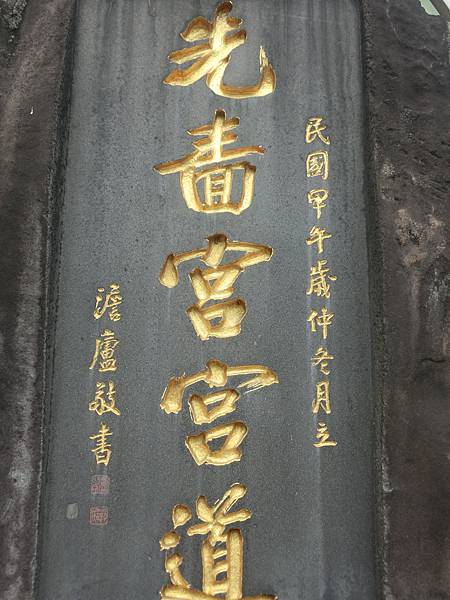 民國甲午歲仲冬月立
先嗇宮宮道
澹廬敬書